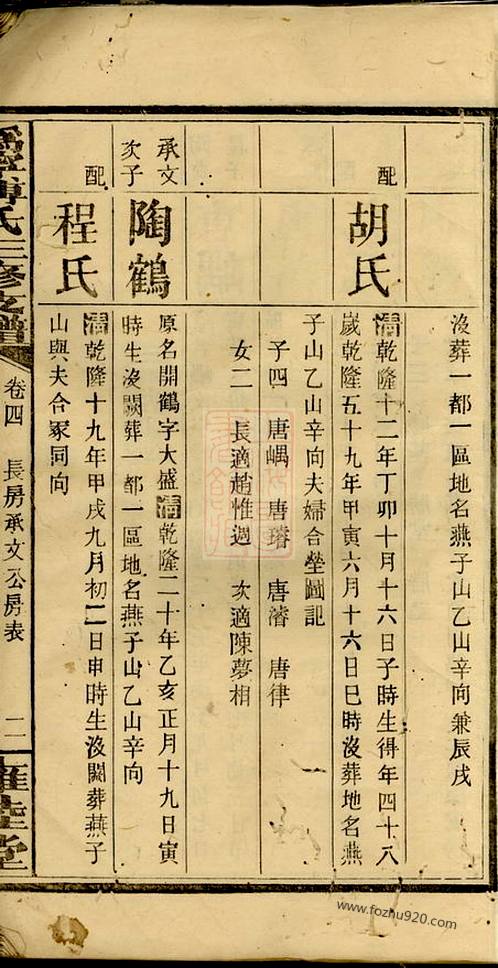 沒葬一都一區地名燕子山乙山辛向兼辰戌
配
胡氏
清乾隆十二年丁卯十月十六日子時生得年四十八
歲乾隆五十九年甲寅六月十六日巳時沒葬地名燕
子山乙山辛向夫婦合塋圖記
子四 唐嵎 唐璿 唐濬 唐律
女二 長適趙惟週 次適陳夢相
承文
次子
陶鶴
原名開鶴字大盛清乾隆二十年乙亥正月十九日寅
時生沒闕葬一都一區地名燕子山乙山辛向
配
程氏
清乾隆十九年甲戌九月初二日申時生沒闕葬燕子
山與夫合冢同向
氏三修支譜
卷四 長房承文公房表
二
堂
www.fozhu920.com